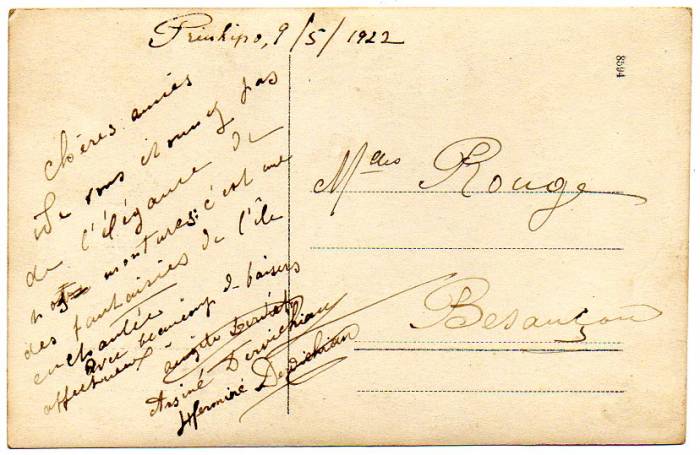 Prinkipo, 9/5/1922
8594
Chères amies
Ne vous étonnez pas
de l'élégance de
nos montures: c'est une
des fantaisies de l'île
enchantée
avec beaucoup de baisers
affectueux
Arsiné Dervichian
Herminé Dervichian
Mlles Rouge
Besançon